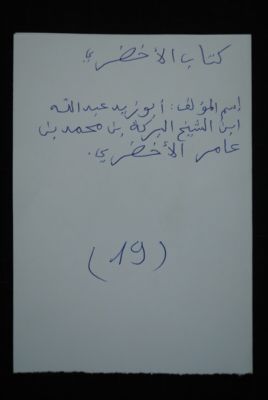 كتاب الأخضري
إسم المؤلف: أبو زيد عبد الله
ابن الشيخ البركة بن محمد بن
عامر الأخضري.
(19)